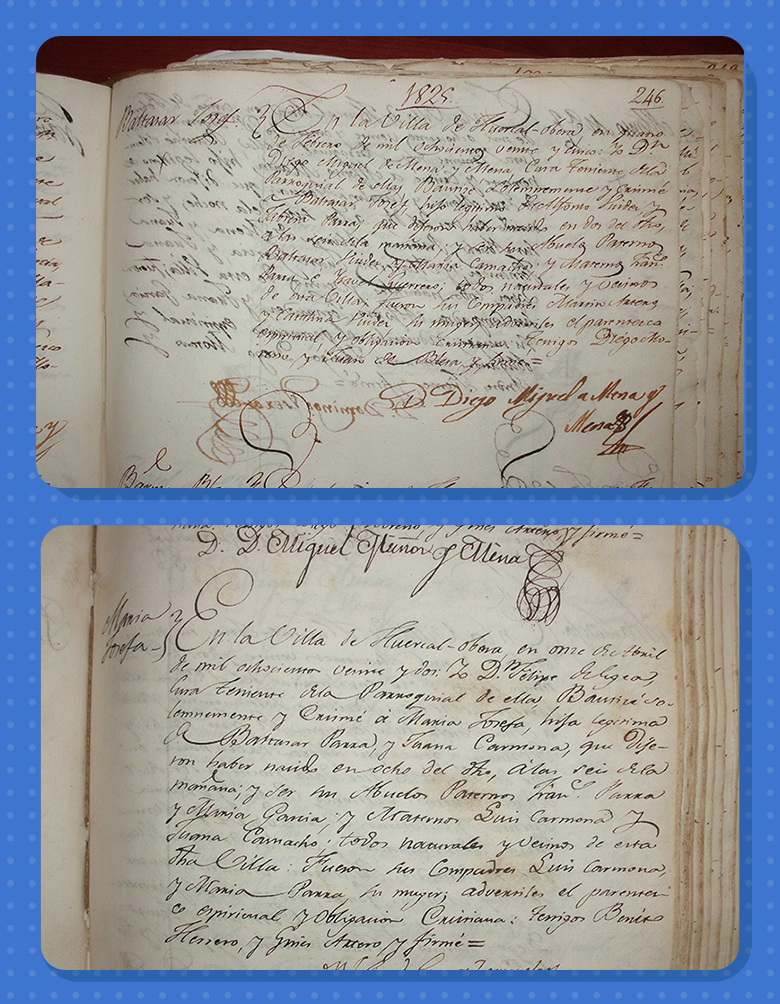 1825. 246.
Baltasar Josef En la Villa de Huercal-obera en quatro
de Febrero de mil ochocientos veinte y cinco: Yo Dn
Diego Miguel de Mena y Mena, Cura Teniente dela
Parroquial de ella, Bautizé solemnemente y Crismé
a Baltasar Josef hijo legitimo de Alfonso Ruder, y
Parra, que dijeron haber nacido en dos del dho,
a las seis dela mañana, y ser sus Abuelos Paternos
Baltasar Ruder, y Maria Camacho, y Maternos Franco
Parra, todos naturales y Vecinos
de esta Villa: fueron sus Compadres Martin Artero
y Catalina Ruder su muger, advertiles el parentesco
espiritual, y obligacion Cristiana: testigos Diego
y Juan de Blera, y firmé=
D. Diego Miguel de Mena y
Mena
D. D. Miguel Muñoz y Mena
Maria
Josefa
En la Villa de Huercal-obera, en once de Abril
de mil ochocientos veinte y dos: Yo Dn Felipe de Egea,
Cura Teniente dela Parroquial de ella Bautizé so-
lemnemente y Crismé á Maria Josefa, hija legitima
de Baltasar Parra, y Juana Carmona, que dije-
ron haber nacido en ocho del dho, a las seis dela
mañana; y ser sus Abuelos Paternos Franco Parra
y Maria Garcia; y Maternos Luis Carmona y
Juana Camacho: todos naturales y Vecinos de esta
dha Villa: Fueron sus Compadres Luis Carmona,
y Maria Parra, su muger; advertiles el parentes-
co espiritual y Obligacion Cristiana: testigos Benito
Herrero, y Gines Artero y firmé=